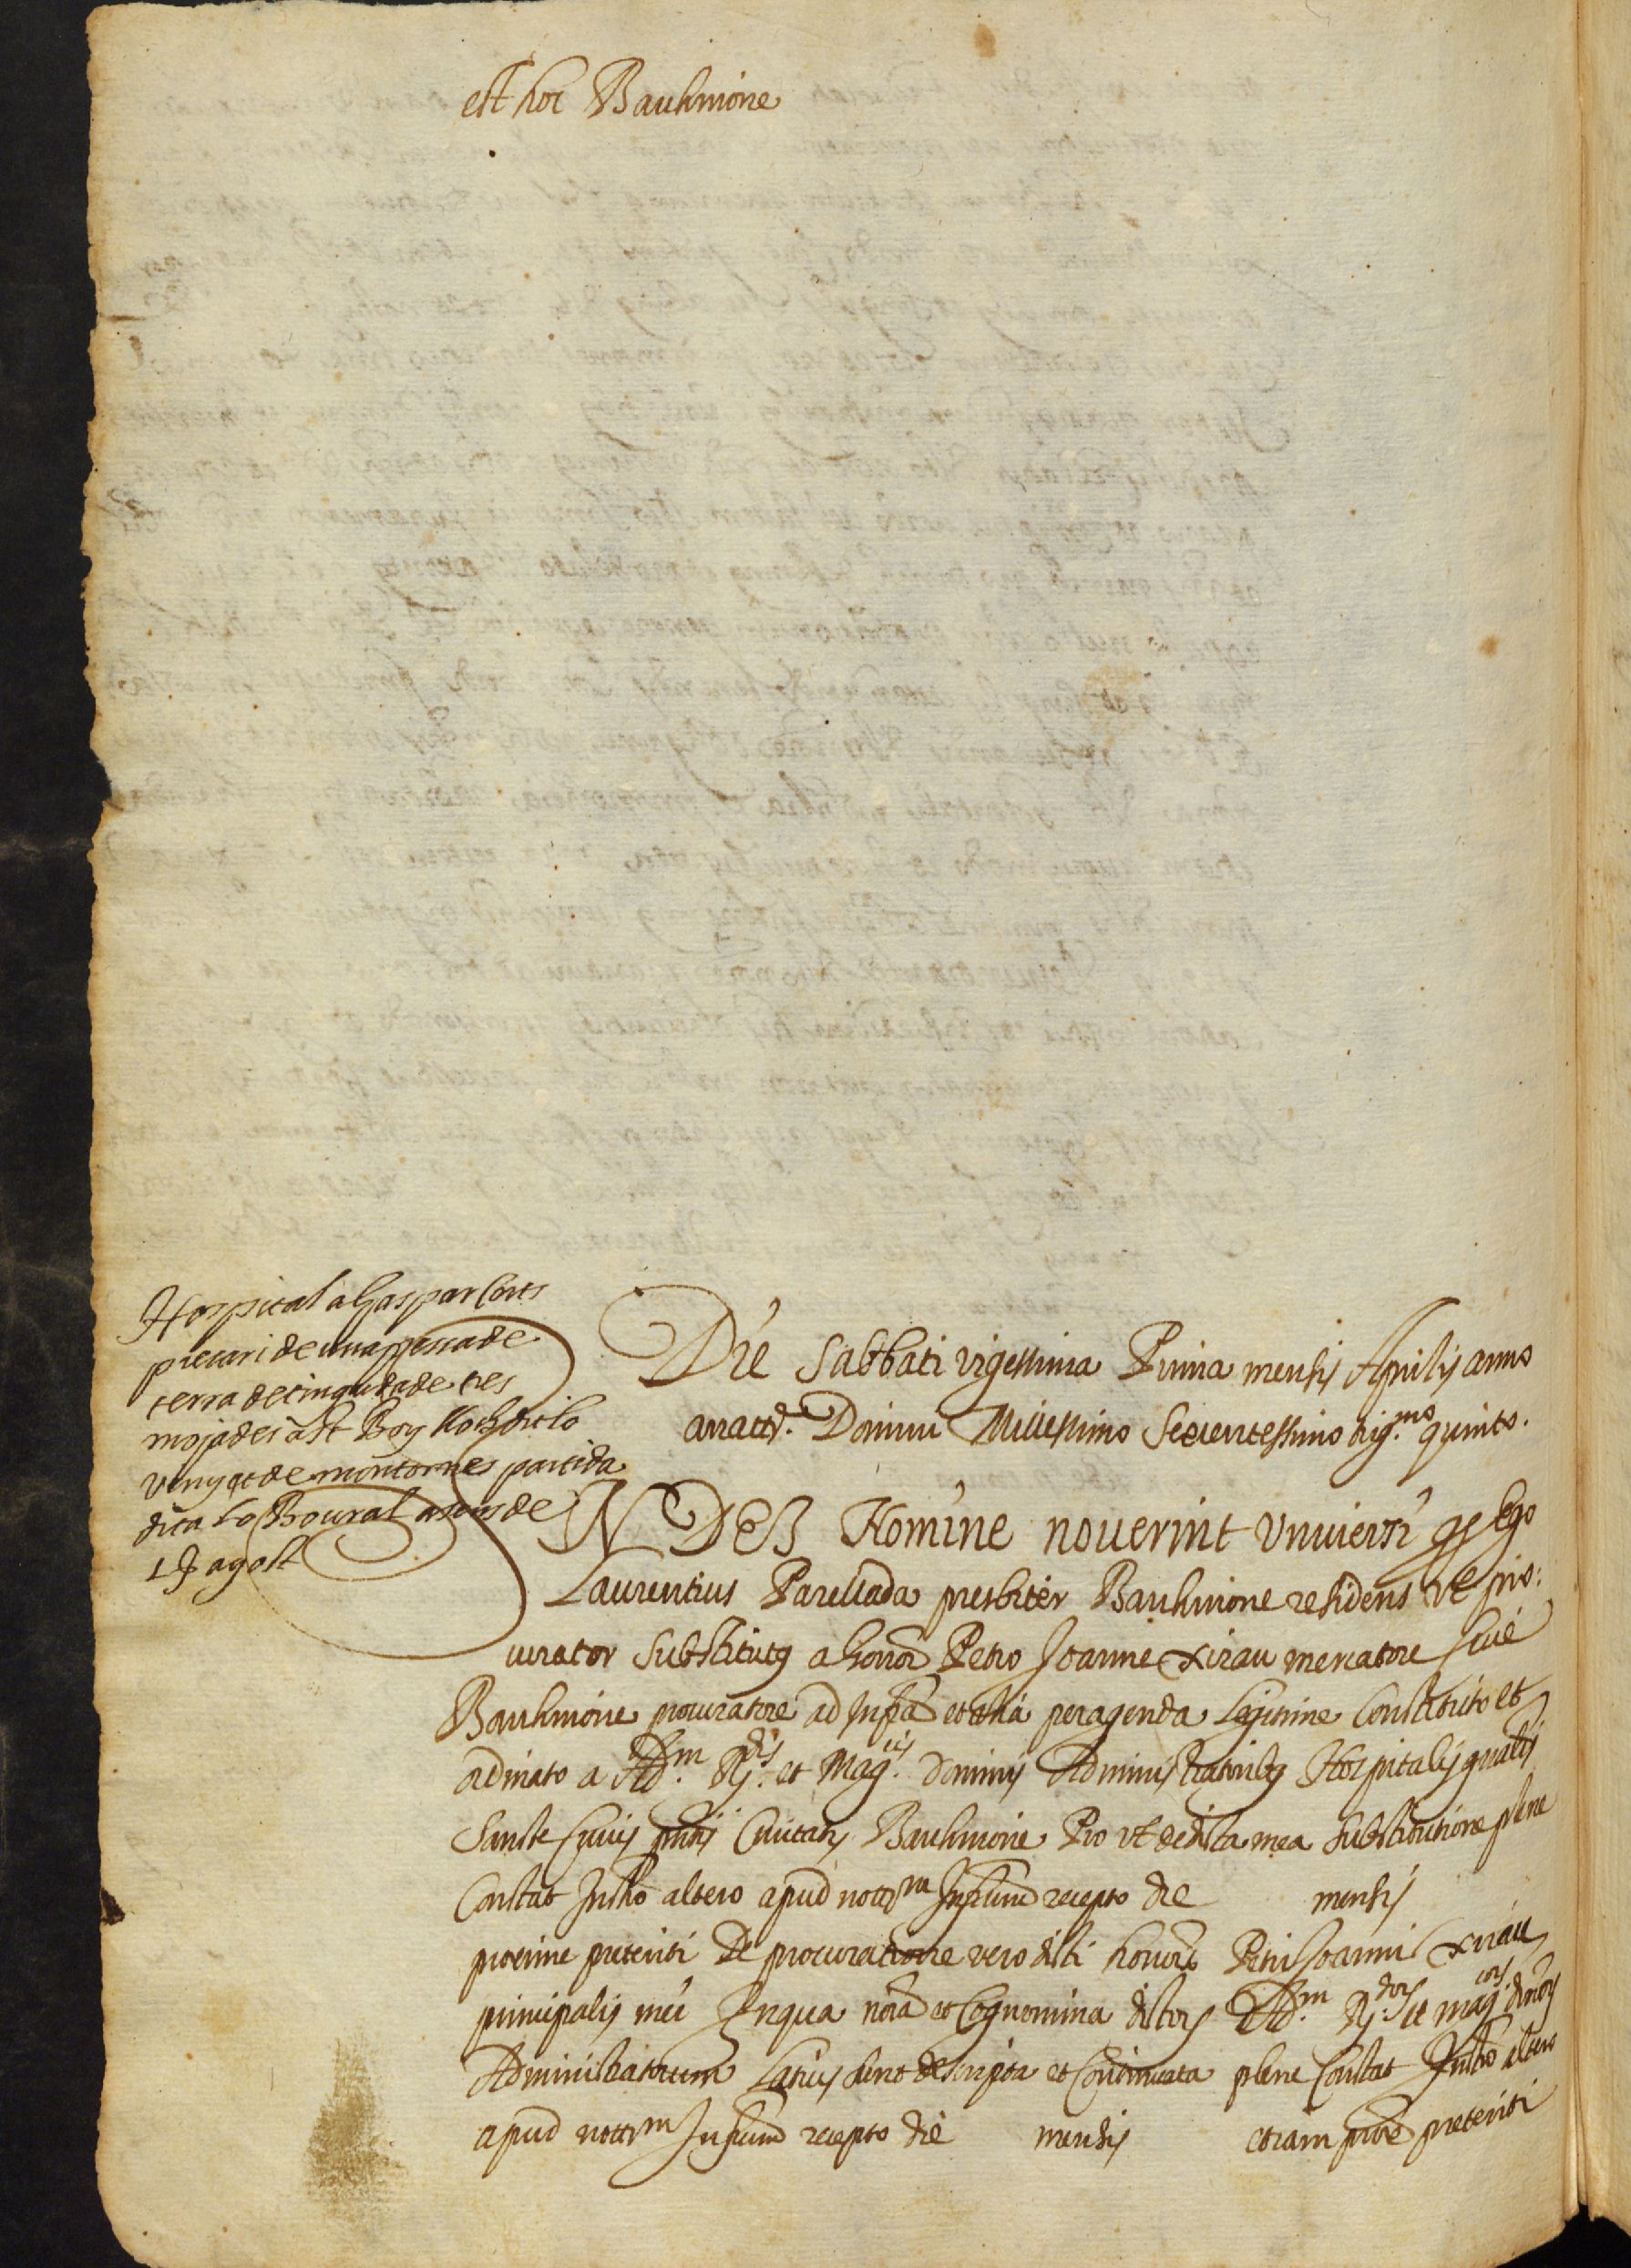 est hoc Barchinone
Hospital a Gaspar Corts
precari de una pessa de
terra de tinguda de tres
mojades a St Boy
vinyet de montornes partida
dita Lo Boural a sens de
15 agost
Die Sabbati vigessima Prima mensis Aprilis anno
a natte. Domini Millessimo Sexcentessimo trig.mo quinto.
IN DEI Nomine noverint Universi qd Ego
Laurentius Parellada presbiter Barchinone residens Ut pro:
curator Substitutus a honor Petro Joanne Xirau mercatore Cive
Barchinone procuratore ad Infra et alia peragenda Legitime Constituto et
ordinato a Ad.m R.dis et Mag.cis dominis Administratoribus Hospitalis gnalis
Sancte Crucis pntis Civitatis Barchinone Pro vt de dicta mea substitutione plene
Constat Instro altero apud nottm Infrum recepto die mensis
proxime preteriti De procuratione vero dicti honor Petri Joannis Xirau
principalis mei In qua noia et Cognomina dictors Ad.m R.dors et mag.cors dnors
Administratorum Latius sunt descripta et Continuata plene Constat Instro altero
apud nottm Infrum recepto die mensis etiam prõe preteriti